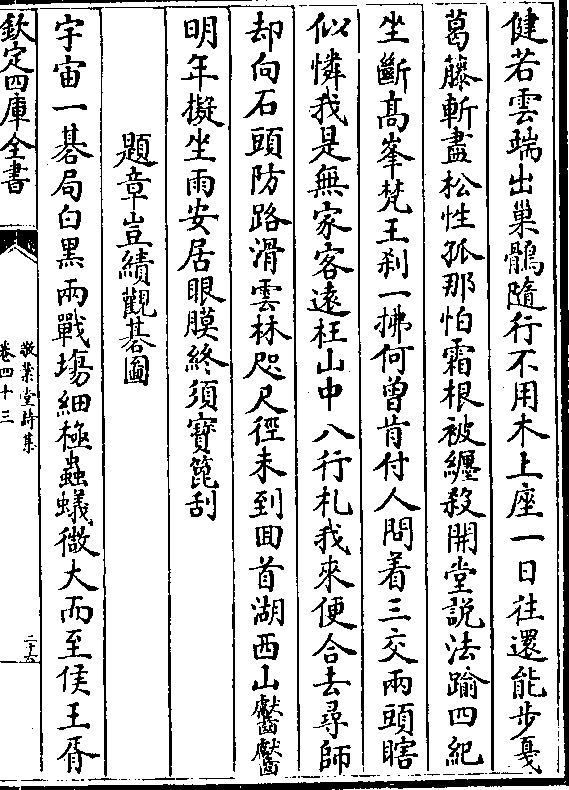 健若雲端出巢鶻隨行不用木上座一日往還能步戞
葛藤斬盡松性孤那怕霜根被纏殺開堂說法踰四紀
坐斷髙峯梵王刹一拂何曾肯付人問着三交兩頭瞎
似憐我是無家客遠枉山中八行札我來便合去尋師
却向石頭防路滑雲林咫尺徑未到囬首湖西山巘巘
明年擬坐雨安居眼膜終須寳篦刮
題章豈績觀碁圖
宇宙一碁局白黒兩戰塲細極蟲蟻微大而至侯王胥
欽定四庫全書
敬業堂詩集
卷四十三
二十六